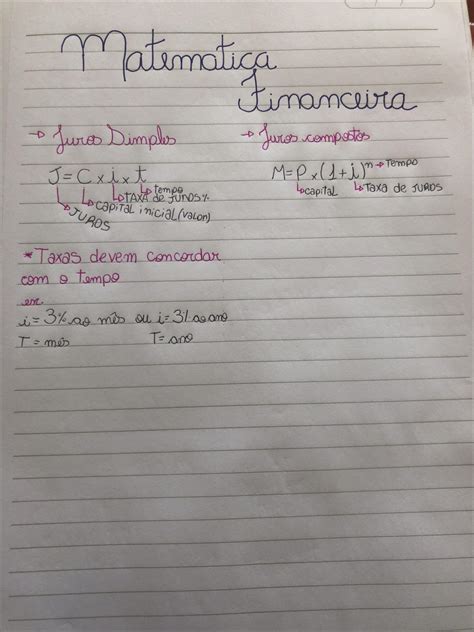 Matematica
Financeira
→ Juros Simples
J = C x i x t
tempo
TAXA DE JUROS %
CAPITAL INICIAL (valor)
JUROS
→ Juros compostos
M = P x (1+i)ⁿ → Tempo
capital
TAXA DE JUROS
* Taxas devem concordar
com o tempo
ex:
i = 3% ao mês ou i = 3% ao ano
T = mês T = ano